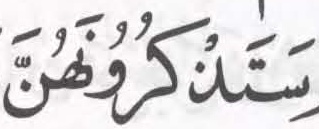 سَتَذْكُرُونَهُنَّ